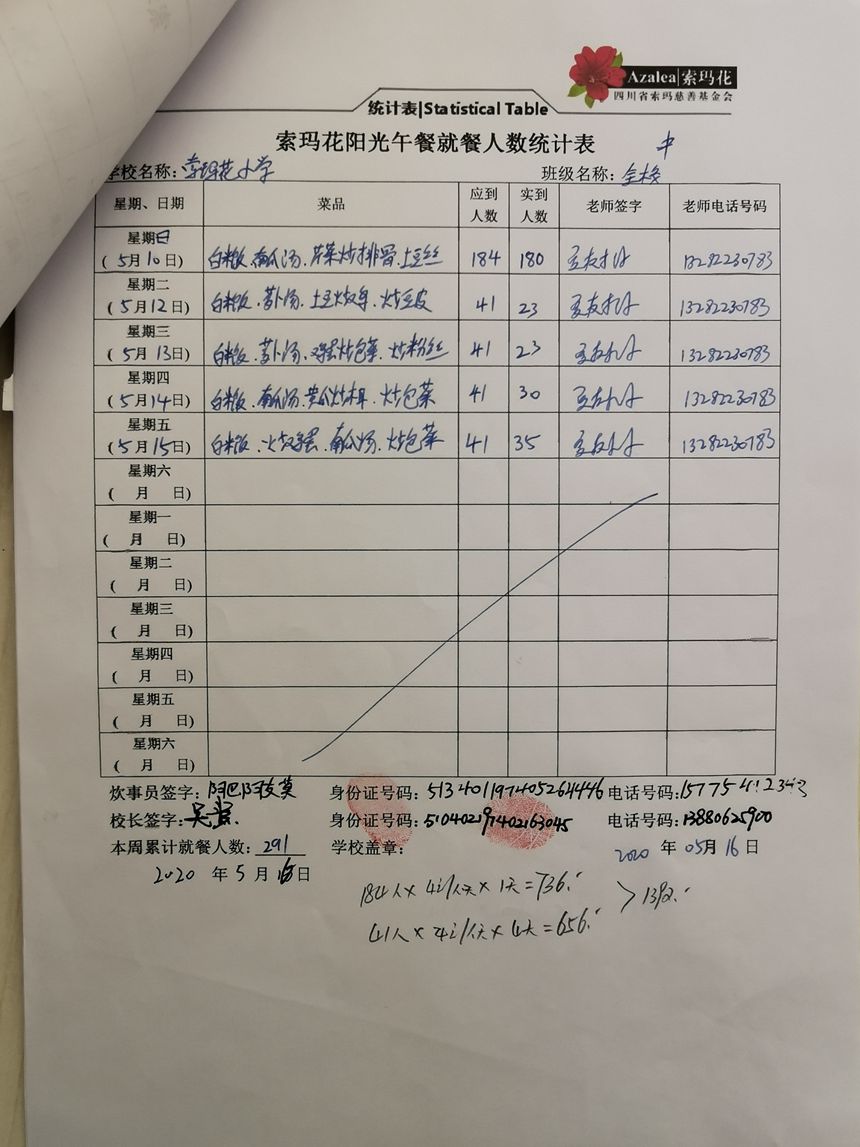 Azalea|索玛花
四川省索玛慈善基金会
统计表|Statistical Table
索玛花阳光午餐就餐人数统计表 中
学校名称:索玛花小学 班级名称:全校
星期、日期 菜品 应到人数 实到人数 老师签字 老师电话号码
星期日
(5月10日) 白米饭.南瓜汤.芹菜炒排骨.土豆丝 184 180 13282230783
星期二
(5月12日) 白米饭.萝卜汤.土豆炖牛.炒豆皮 41 23 13282230783
星期三
(5月13日) 白米饭.萝卜汤.鸡蛋炒包菜.炒粉丝 41 23 13282230783
星期四
(5月14日) 白米饭.南瓜汤.黄瓜炒木耳.炒包菜 41 30 13282230783
星期五
(5月15日) 白米饭.火炒鸡蛋.南瓜汤.炒包菜 41 35 13282230783
星期六
( 月 日)
星期一
( 月 日)
星期二
( 月 日)
星期三
( 月 日)
星期四
( 月 日)
星期五
( 月 日)
星期六
( 月 日)
炊事员签字:阿巴阿友莫 身份证号码:513401197405264446 电话号码:15775412343
校长签字: 身份证号码:510402197402163045 电话号码:13880625900
本周累计就餐人数:291 学校盖章: 2020 年 05月 16 日
2020 年 5 月 16日
184人×4元/人天×1天=736.- >1392.-
41人×4元/人天×4天=656.-